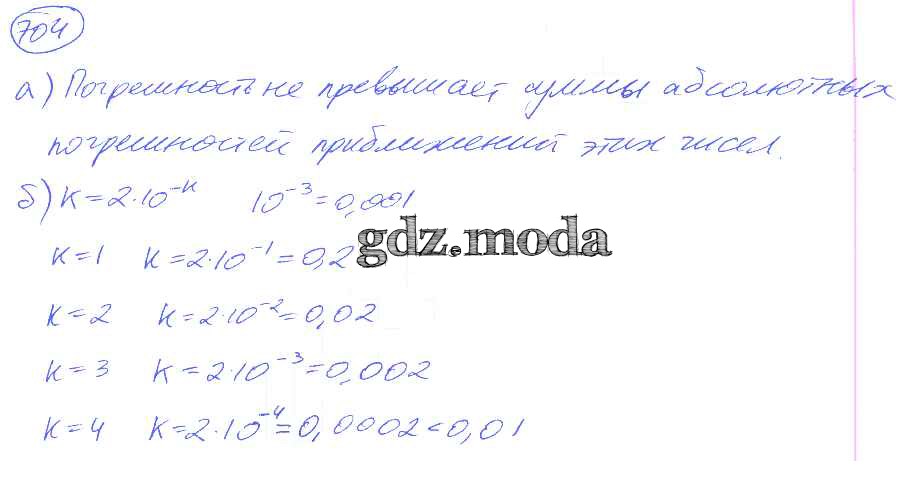 704
а) Погрешность не превышает суммы абсолютных
погрешностей приближений этих чисел.
б) К=2·10⁻ᴷ 10⁻³=0,001
gdz.moda
К=1 К=2·10⁻¹=0,2
К=2 К=2·10⁻²=0,02
К=3 К=2·10⁻³=0,002
К=4 К=2·10⁻⁴=0,0002<0,01